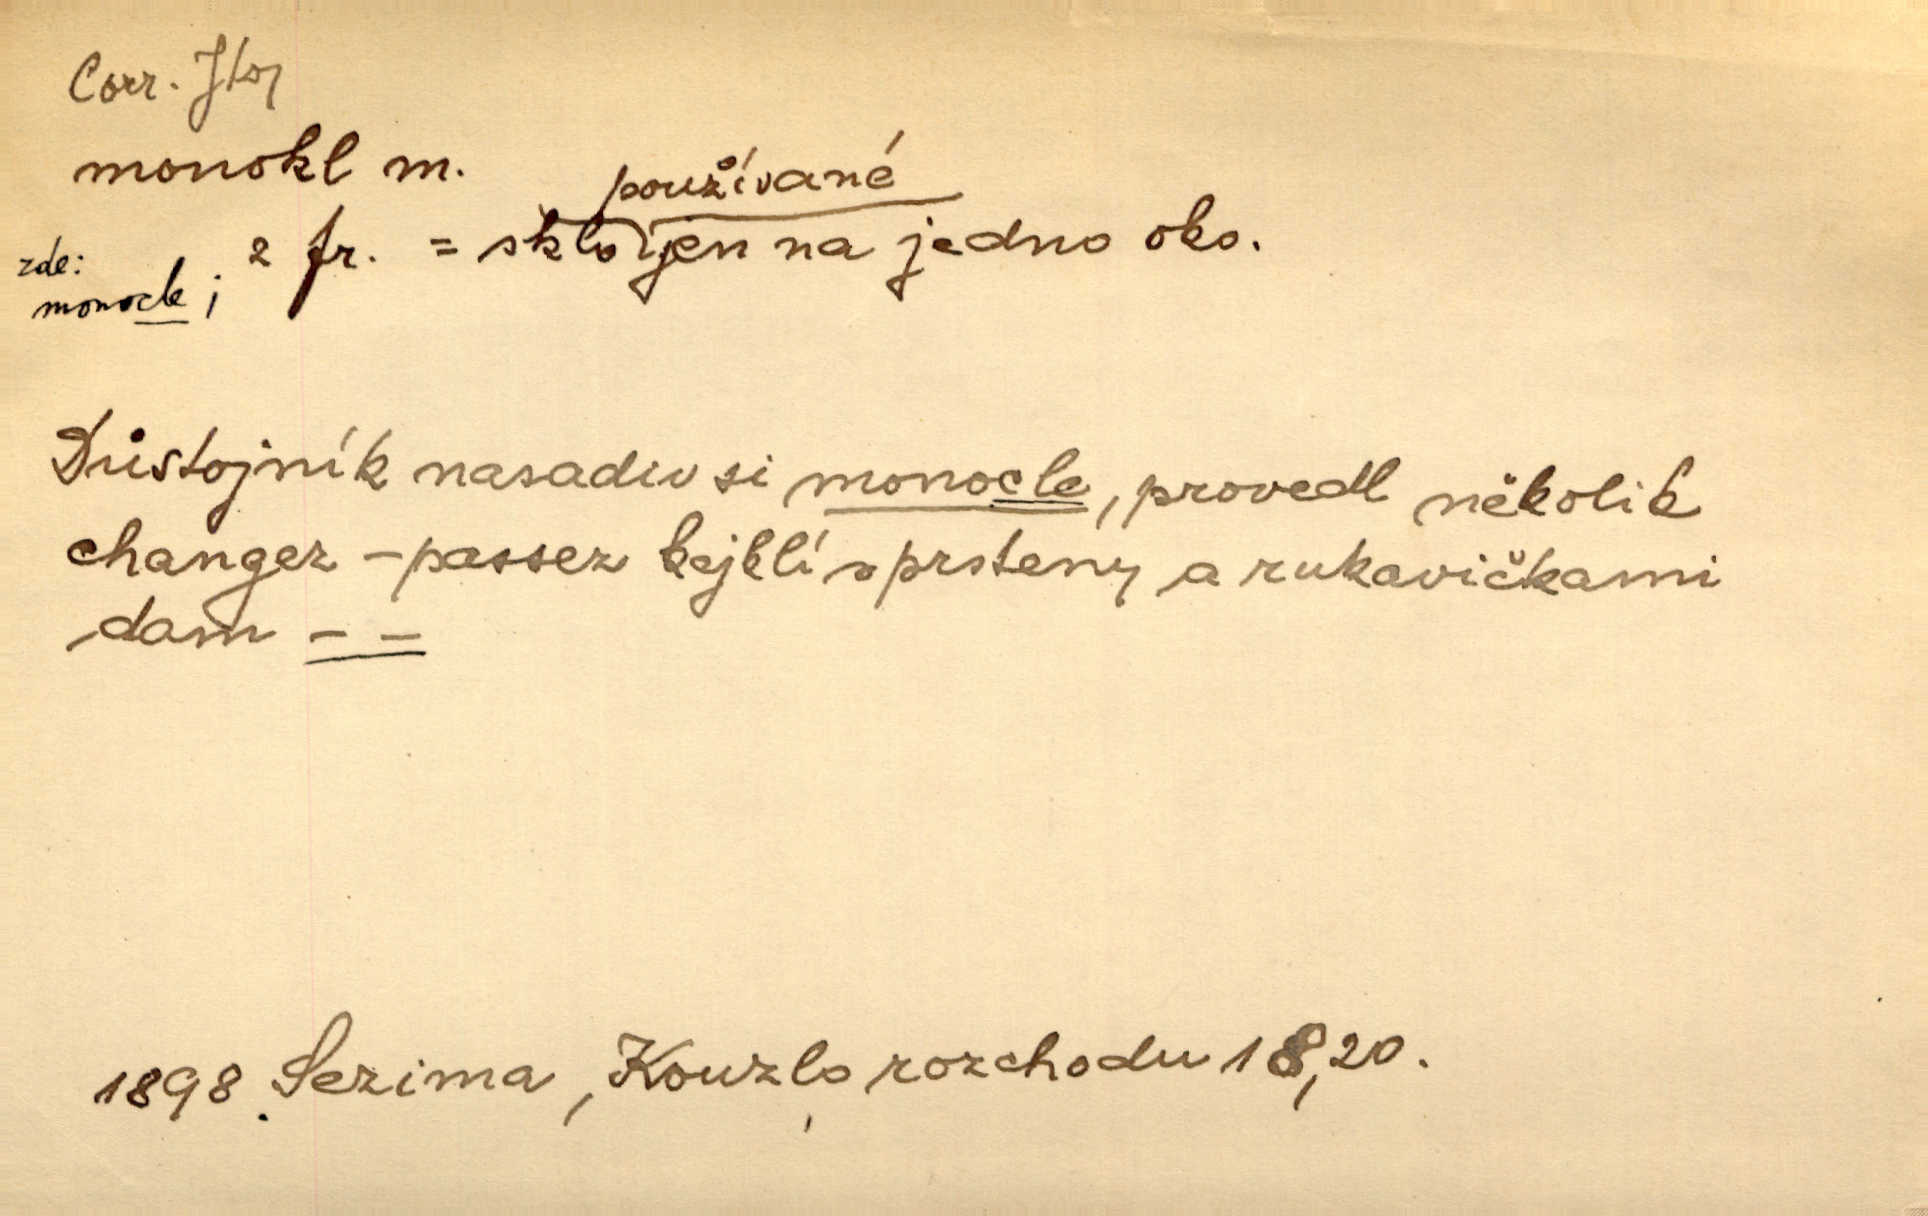 Corr.
monokl m.
používané
zde: monocle; z fr. = sklo jen na jedno oko.
Důstojník nasadiv si monocle, provedl několik
changez - passez kejklí s prsteny a rukavičkami
dam - -
1898 Sezima, Kouzlo rozchodu 18,20.